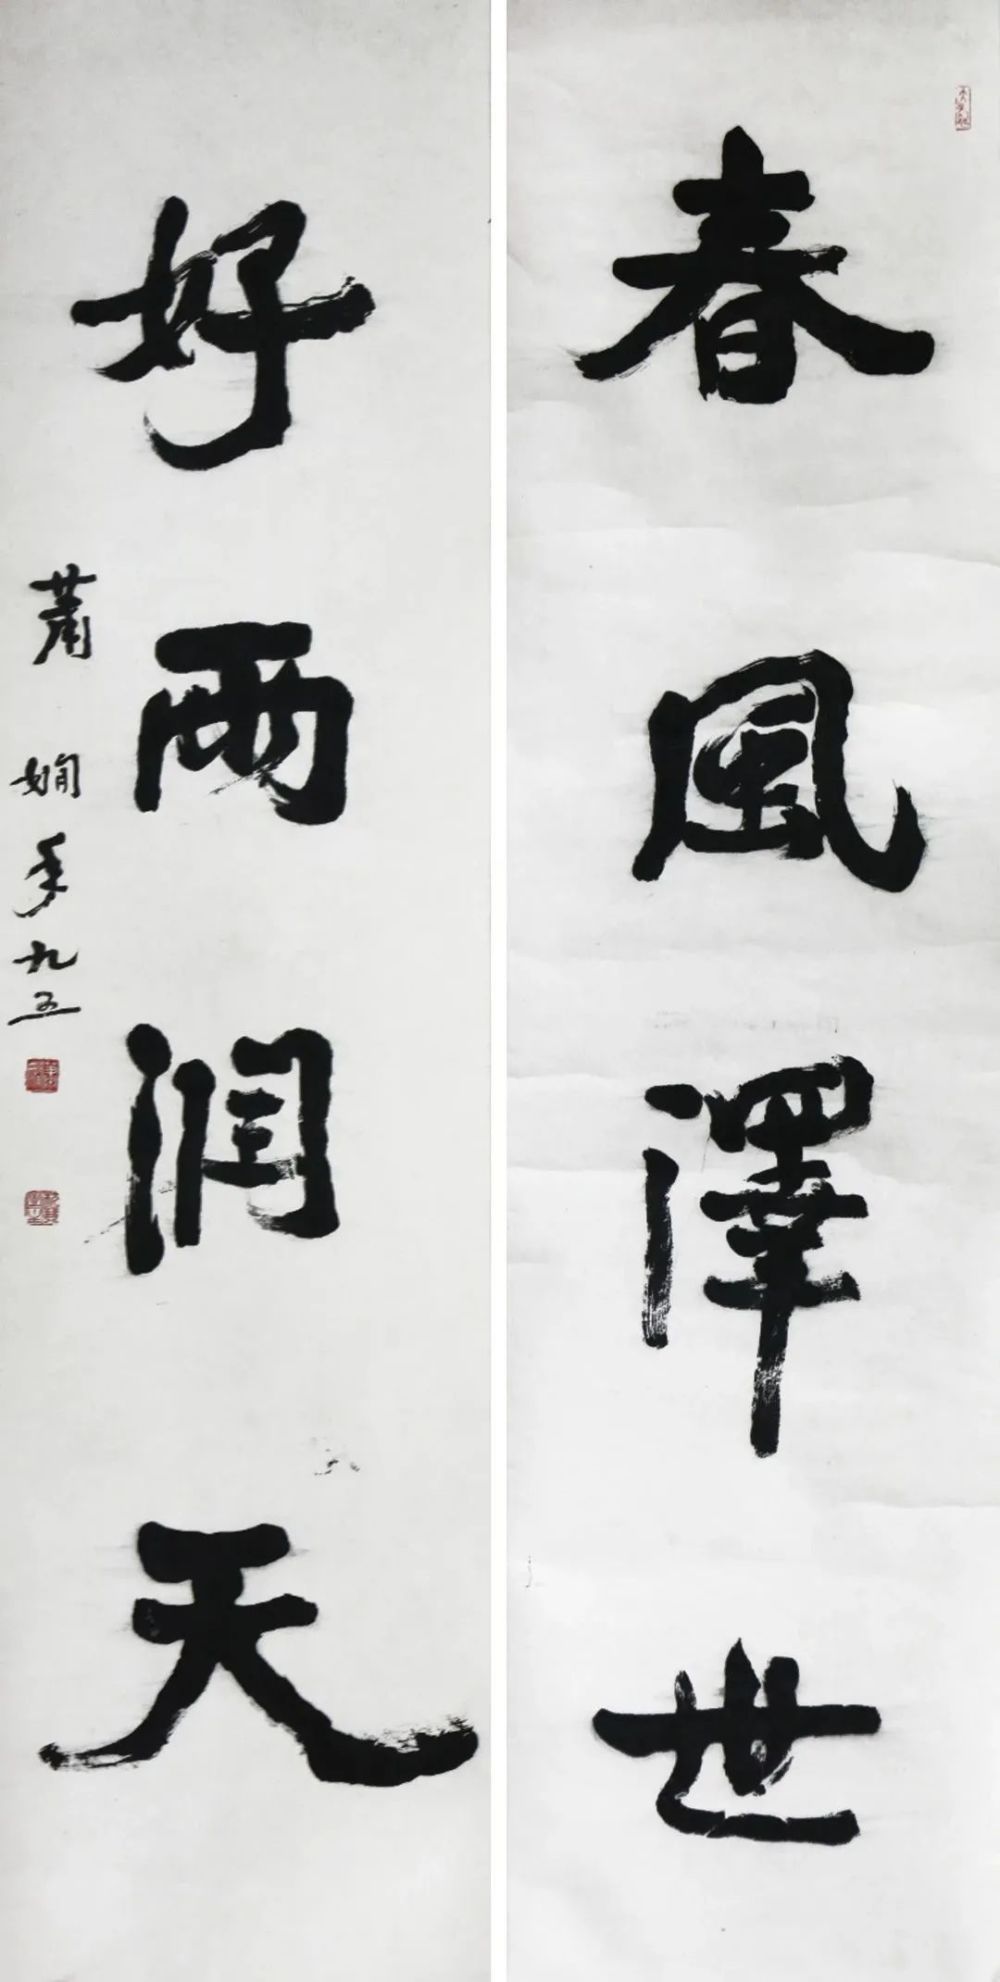 春風澤世
好雨润天
萧娴年九五